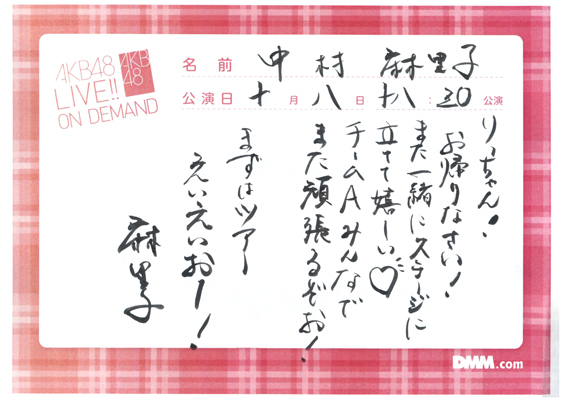 AKB48
LIVE!!
ON DEMAND
AKB
48
名前 中村 麻里子
公演日 十月八日 十八:30 公演
りっちゃん!
お帰りなさい!
また一緒にステージに
立てて嬉しい♡
チームAみんなで
また頑張るぞお!
まずはツアー
えいえいおー!
麻里子
DMM.com